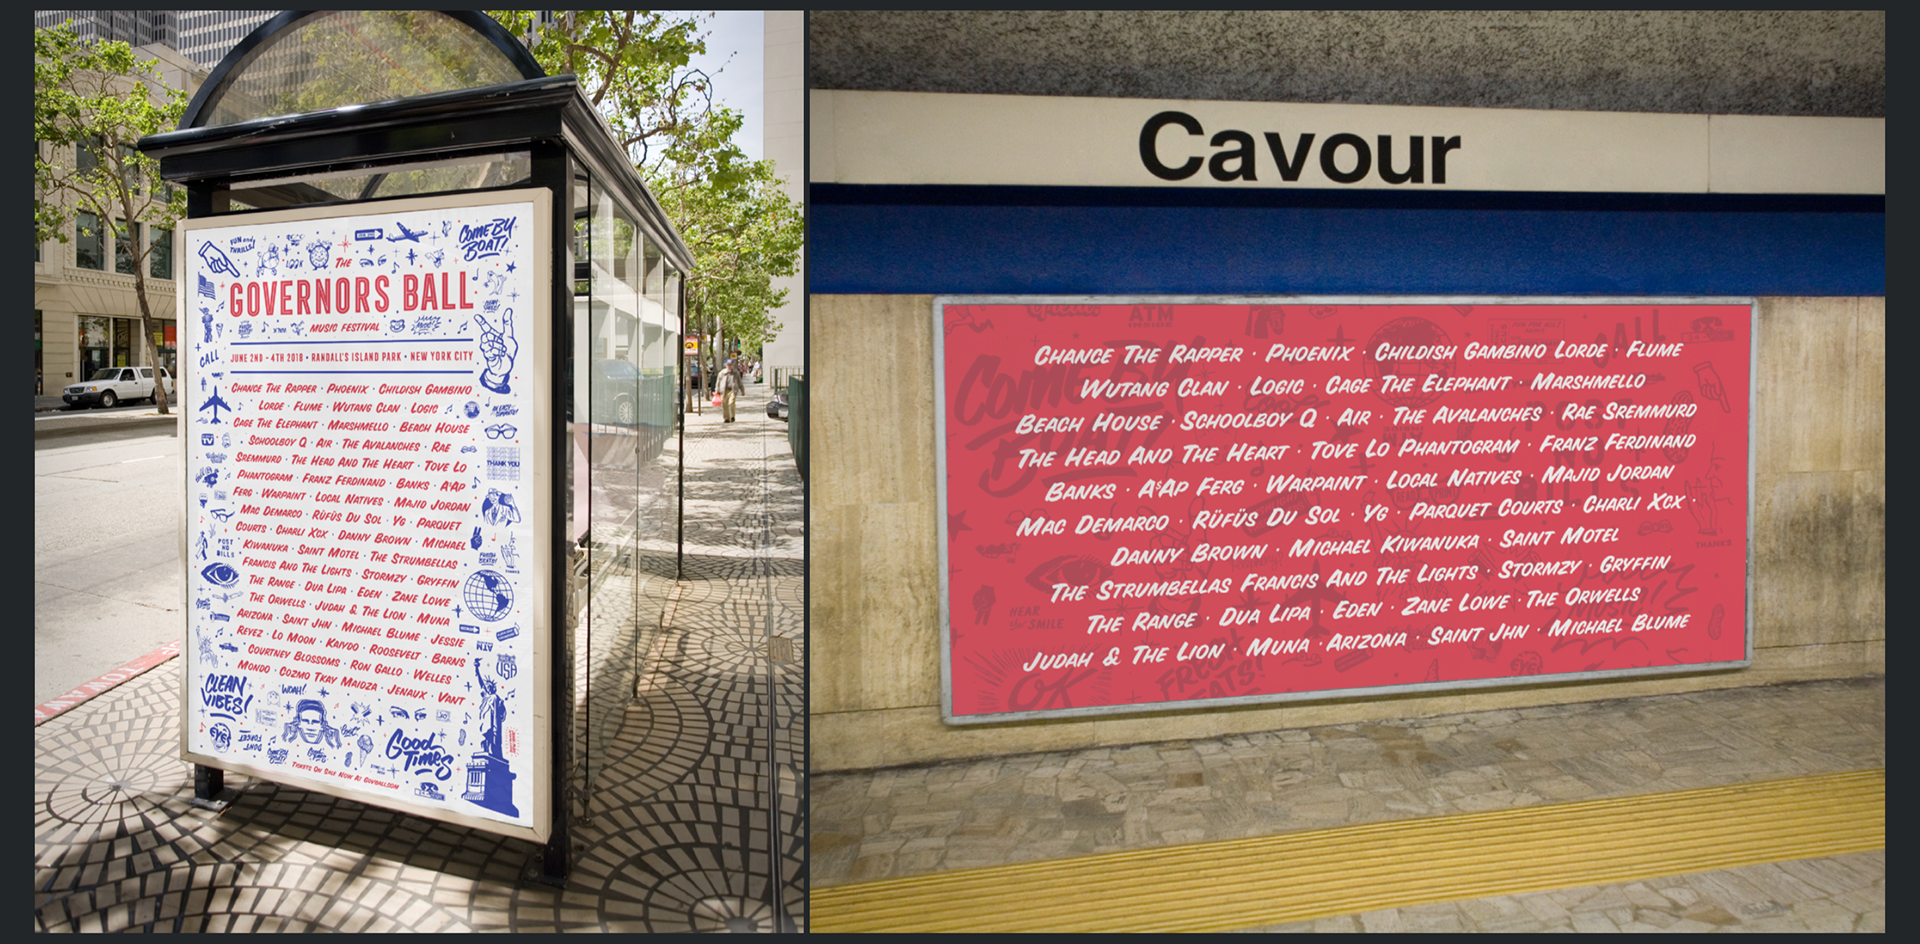 FUN and THRILLS!
COME BY BOAT!
THE
GOVERNORS BALL
MUSIC FESTIVAL
CALL
JUNE 2ND - 4TH 2018 • RANDALL'S ISLAND PARK • NEW YORK CITY
CHANCE THE RAPPER · PHOENIX · CHILDISH GAMBINO
LORDE · FLUME · WUTANG CLAN · LOGIC
CAGE THE ELEPHANT · MARSHMELLO · BEACH HOUSE
SCHOOLBOY Q · AIR · THE AVALANCHES · RAE
SREMMURD · THE HEAD AND THE HEART · TOVE LO
PHANTOGRAM · FRANZ FERDINAND · BANKS · A$AP
FERG · WARPAINT · LOCAL NATIVES · MAJID JORDAN
MAC DEMARCO · RÜFÜS DU SOL · YG · PARQUET
COURTS · CHARLI XCX · DANNY BROWN · MICHAEL
KIWANUKA · SAINT MOTEL · THE STRUMBELLAS
FRANCIS AND THE LIGHTS · STORMZY · GRYFFIN
THE RANGE · DUA LIPA · EDEN · ZANE LOWE
THE ORWELLS · JUDAH & THE LION · MUNA
ARIZONA · SAINT JHN · MICHAEL BLUME · JESSIE
REYEZ · LO MOON · KAIYDO · ROOSEVELT · BARNS
COURTNEY BLOSSOMS · RON GALLO · WELLES
MONDO · COZMO TKAY MAIDZA · JENAUX · VANT
THANK YOU
POST NO BILLS
ATM
USA
CLEAN VIBES!
WOAH!
EYE
DON'T FORGET
Good Times
TICKETS ON SALE NOW AT GOVBALL.COM
Cavour
ATM
CALL
COME BY BOAT!
CHANCE THE RAPPER · PHOENIX · CHILDISH GAMBINO LORDE · FLUME
WUTANG CLAN · LOGIC · CAGE THE ELEPHANT · MARSHMELLO
BEACH HOUSE · SCHOOLBOY Q · AIR · THE AVALANCHES · RAE SREMMURD
THE HEAD AND THE HEART · TOVE LO PHANTOGRAM · FRANZ FERDINAND
BANKS · A$AP FERG · WARPAINT · LOCAL NATIVES · MAJID JORDAN
MAC DEMARCO · RÜFÜS DU SOL · YG · PARQUET COURTS · CHARLI XCX
DANNY BROWN · MICHAEL KIWANUKA · SAINT MOTEL
THE STRUMBELLAS FRANCIS AND THE LIGHTS · STORMZY · GRYFFIN
THE RANGE · DUA LIPA · EDEN · ZANE LOWE · THE ORWELLS
JUDAH & THE LION · MUNA · ARIZONA · SAINT JHN · MICHAEL BLUME
POST NO BILLS
THANKS
HEAR the SMILE
OK
FRESH BEATS!